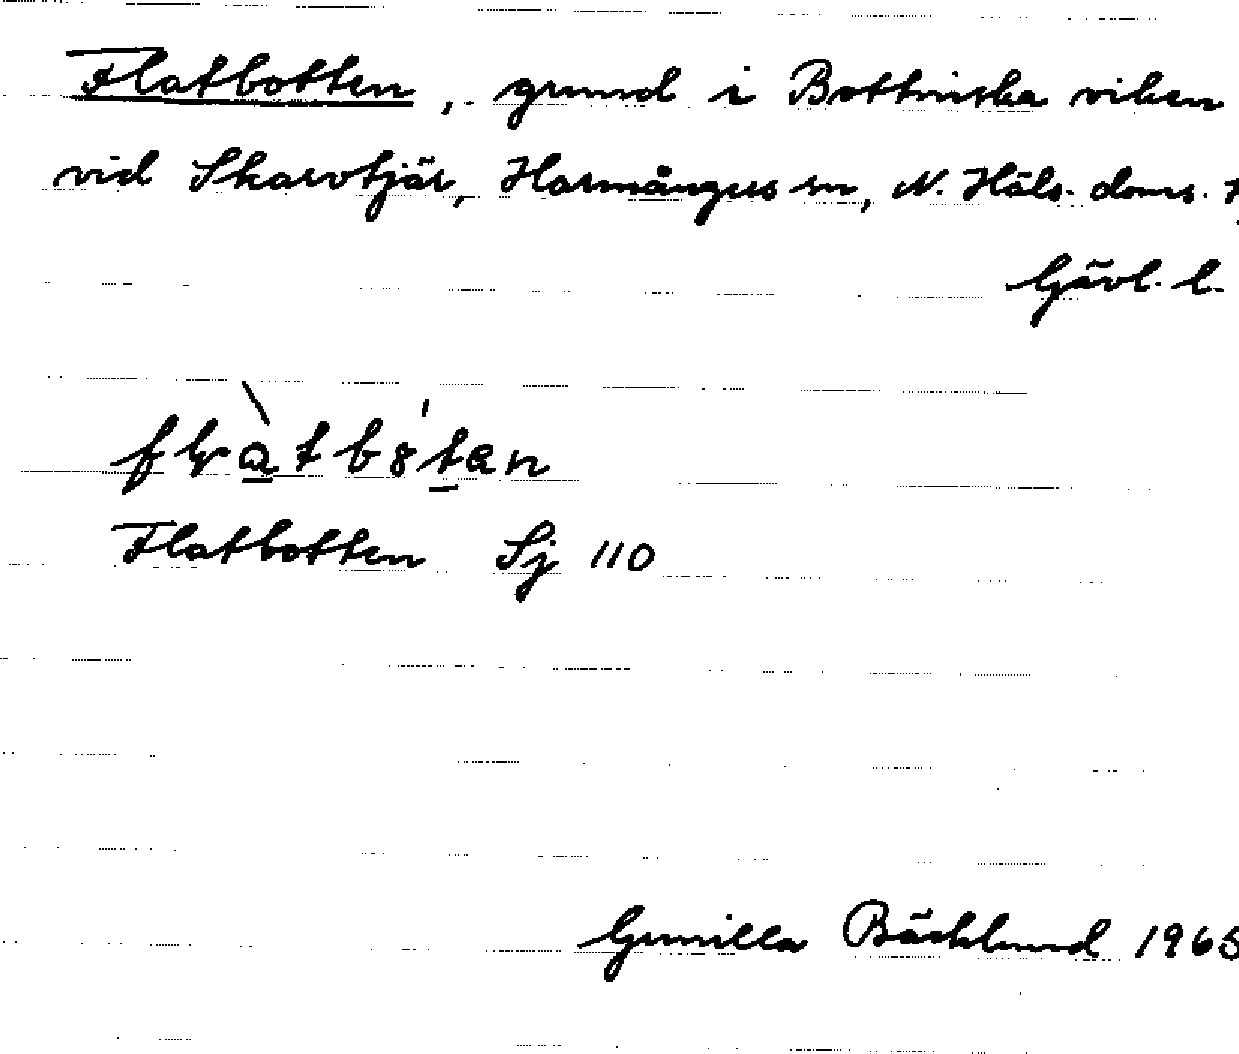 Flatbotten, grund i Bottniska viken
vid Skarvtjär, Harmångers sn, N. Häls. doms.
Gävl. l.
Flatbotten Sj 110
Gunilla Bäcklund 1965